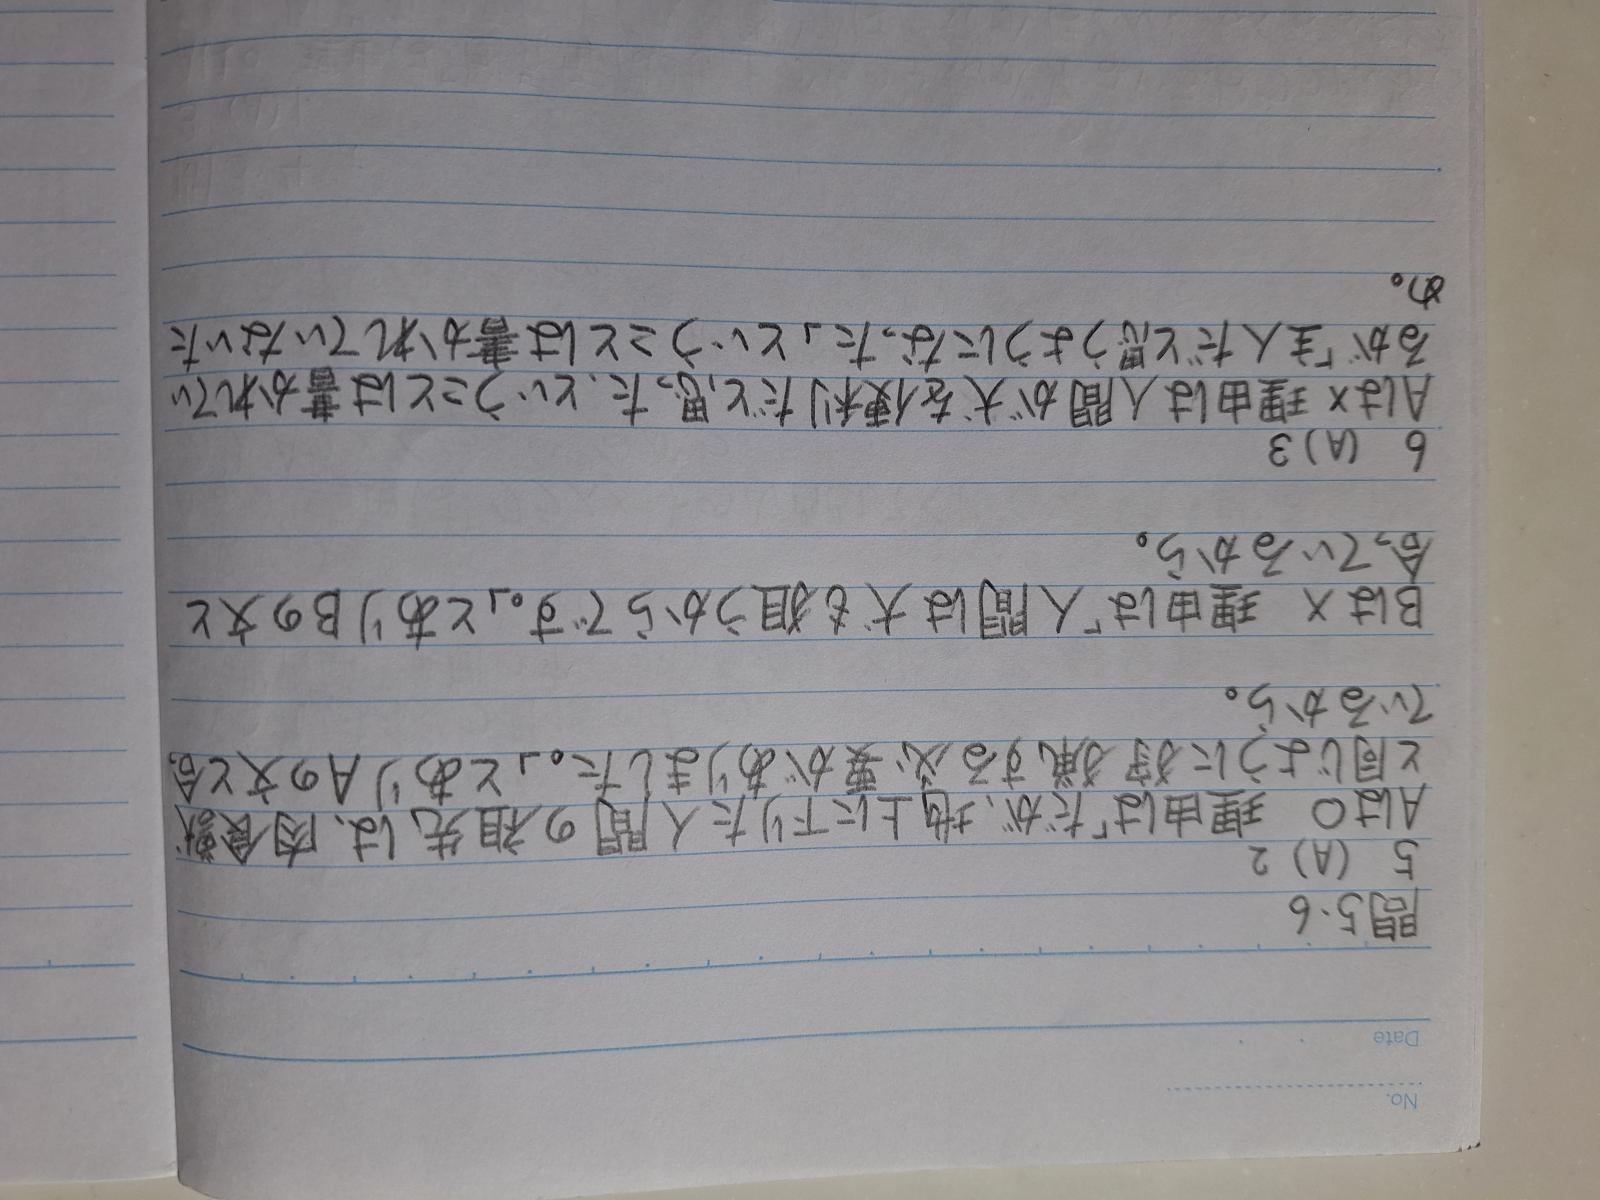 No.
Date
問5・6
5 (A) 2
Aは○ 理由は「だが、地上に下りた人間の祖先は、肉食獣
と同じように狩猟する必要がありました。」とありAの文と合っ
ているから。
Bは× 理由は「人間は犬も狙うからです。」とありBの文と
合っているから。
6 (A) 3
Aは× 理由は人間が犬を便利だと思った、ということは書かれてい
るが「主人だと思うようになった」ということは書かれていないた
め。